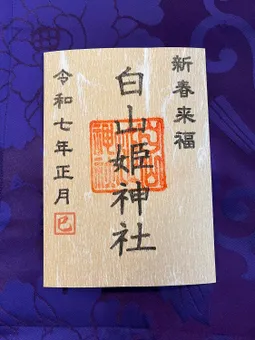 新春来福
白山姫神社
令和七年正月
巳